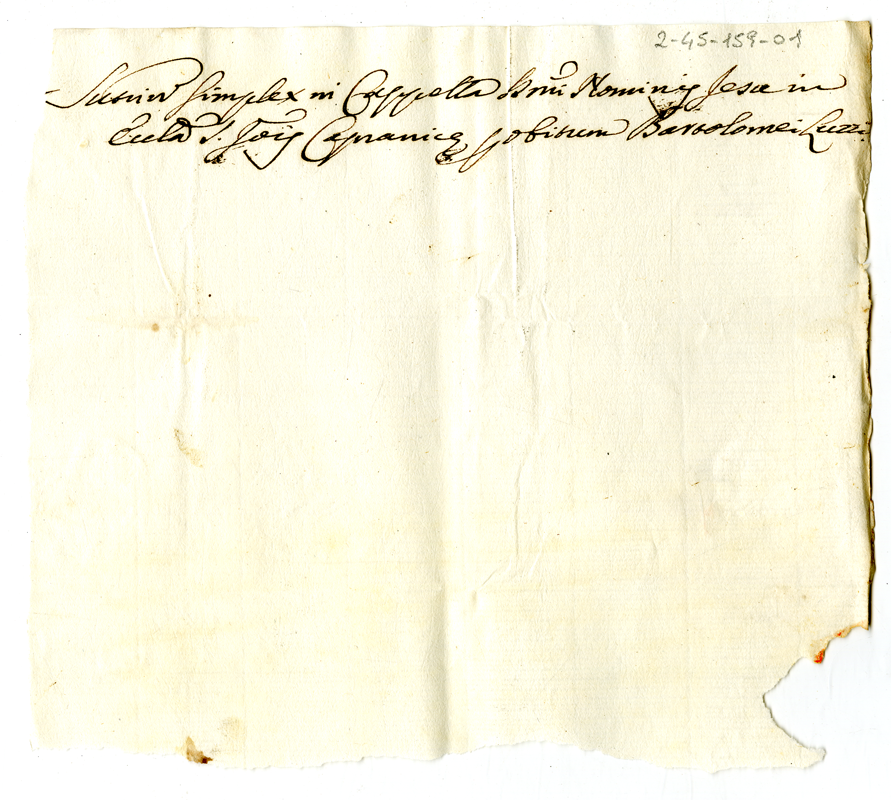 2-45-159-01
simplex in Cappella SSmi Nominis Jesu in
Eccla S. Jois Capranice p obitum Bartolomei Luzzi